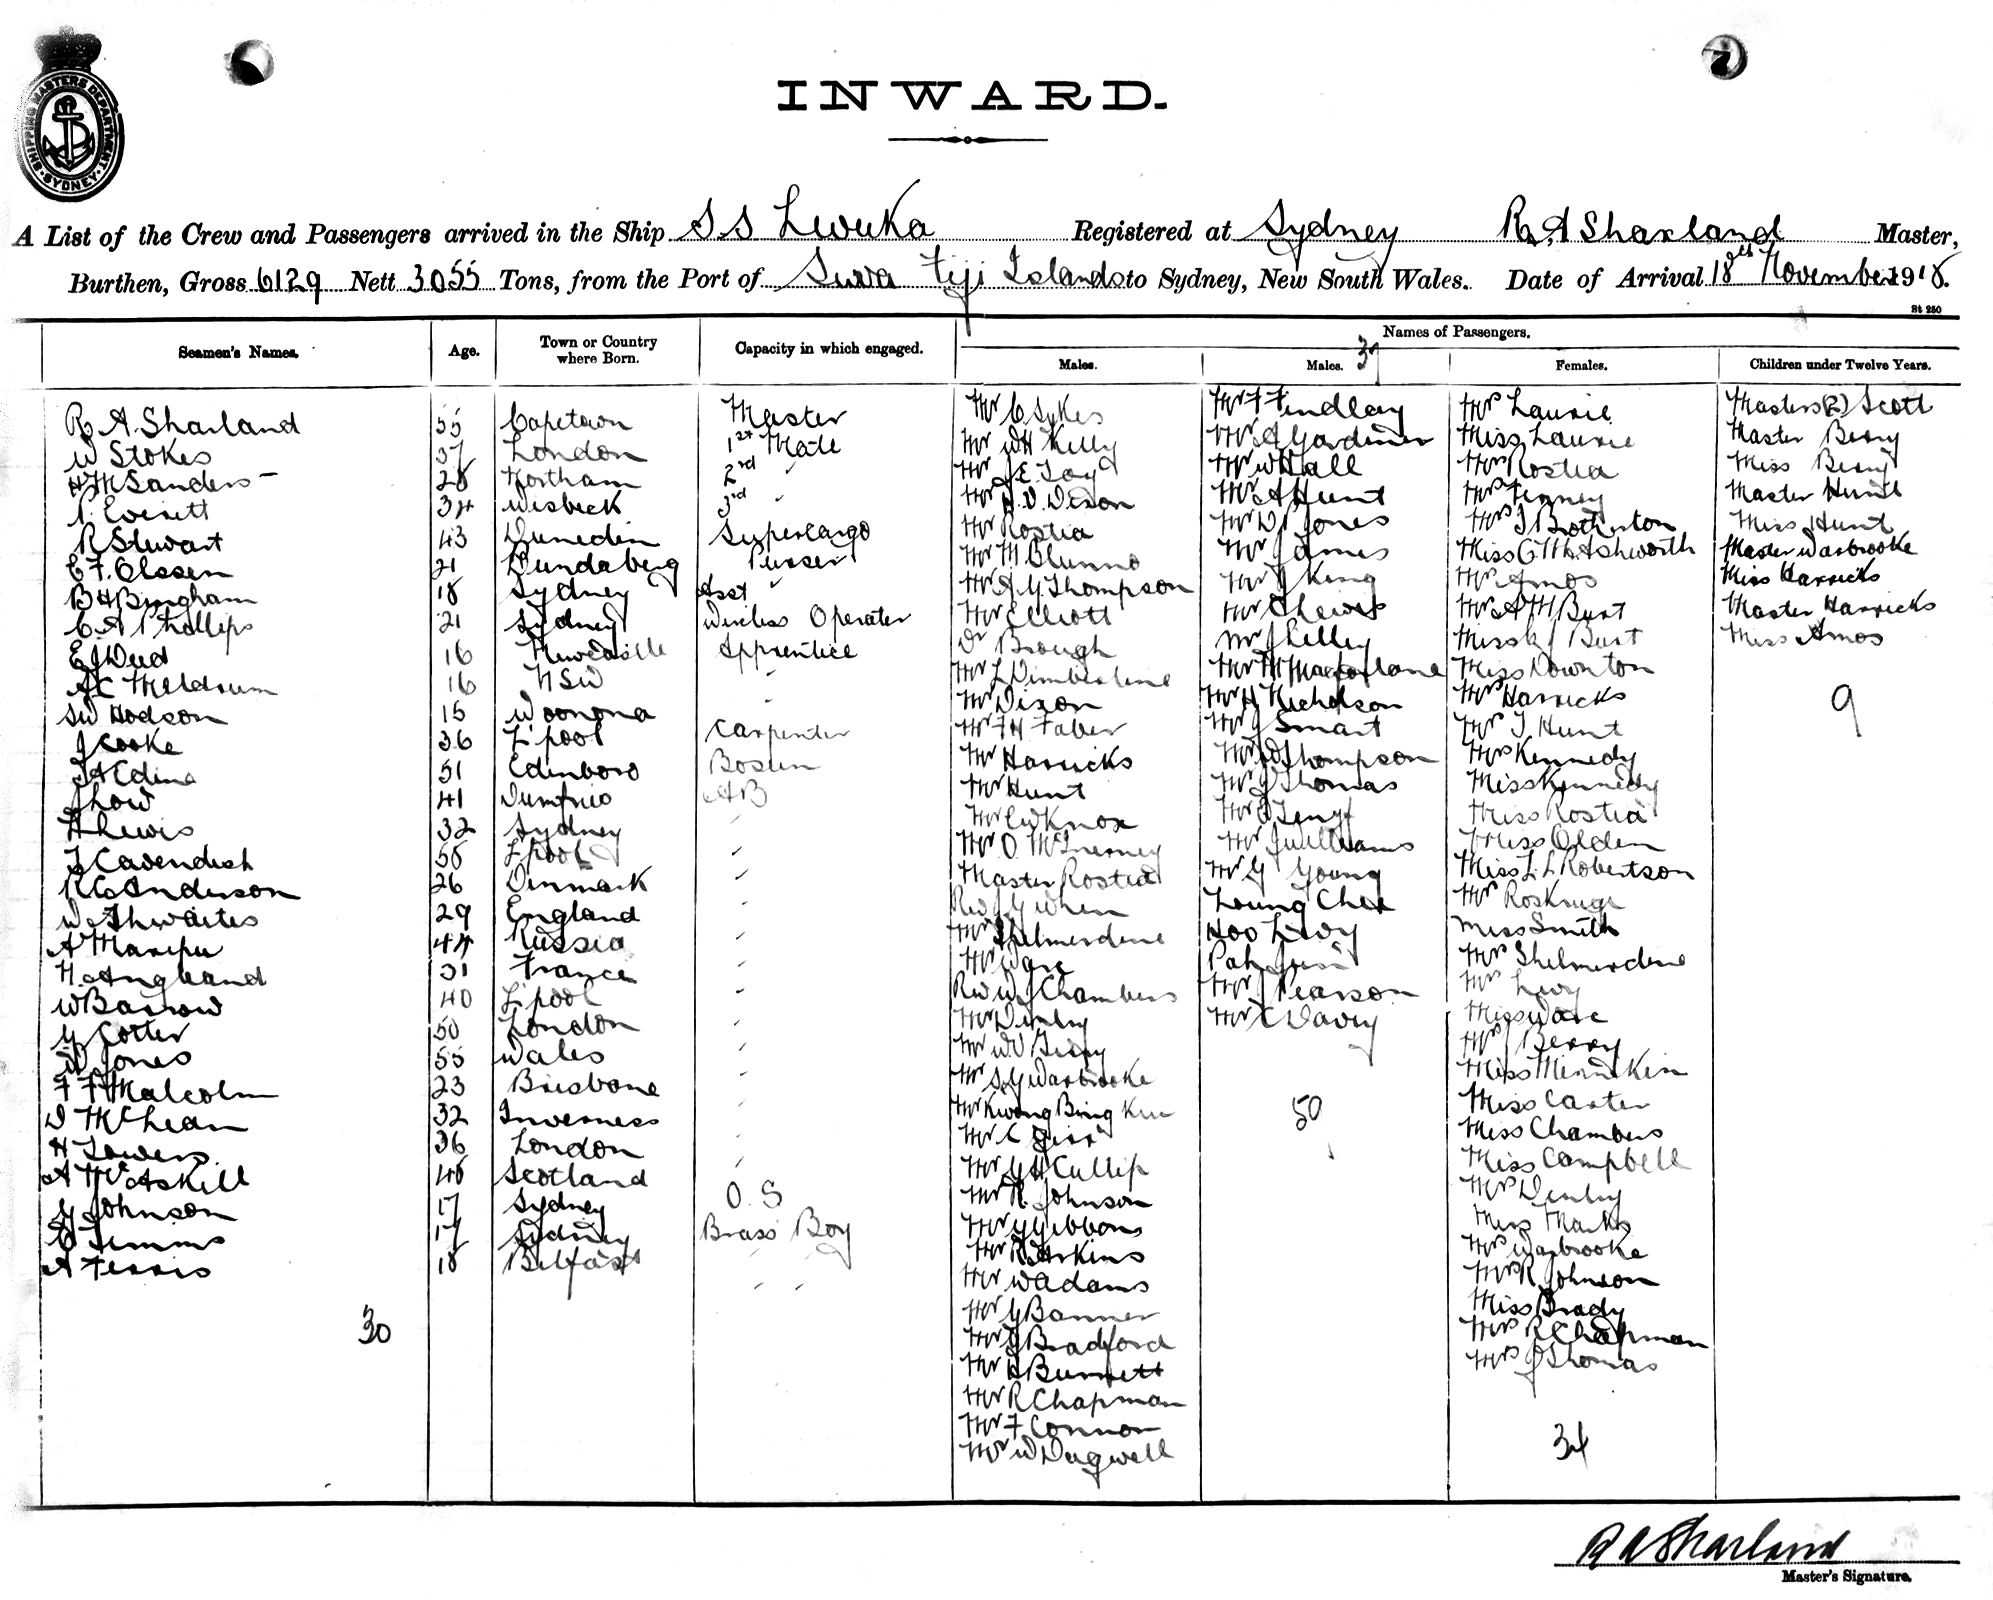 SHIPPING MASTERS DEPARTMENT
SYDNEY
INWARD.
A List of the Crew and Passengers arrived in the Ship S S Levuka Registered at Sydney R A Sharland Master,
Burthen, Gross 6129 Nett 3055 Tons, from the Port of Suva Fiji Islands to Sydney, New South Wales. Date of Arrival 18th November 1918.
St 250
Seamen's Names. Age. Town or Country where Born. Capacity in which engaged. Names of Passengers.
Males. Males. Females. Children under Twelve Years.
R A Sharland 55 Capetown Master
W Stokes 37 London 1st Mate
H M Sanders 28 Northam 2nd "
Everett 34 Wisbeck 3rd "
R Stewart 43 Dunedin Supercargo
E F Olssen 21 Bundaberg Purser
B H Bingham 18 Sydney Asst "
C A Phillips 21 Sydney Wireless Operater
E J Dud 16 Newcastle Apprentice
A C Meldrum 16 NSW "
S W Hodson 15 Woonona "
J Cooke 36 L'pool Carpenter
51 Edinboro Bosun
J Low 41 Dumfries AB
H Lewis 32 Sydney "
J Cavendish 55 L'pool "
R C Anderson 26 Denmark "
W Thwaites 29 England "
A 44 Russia "
H Angland 31 France "
W Barrow 40 L'pool "
G Cotter 50 London "
W Jones 55 Wales "
F F Malcolm 23 Brisbane "
D McLean 32 Inverness "
H Towers 36 London "
A McAskill 40 Scotland "
G Johnson 17 Sydney O.S
E Timms 17 Sydney Brass Boy
A Ferris 18 Belfast " "
30
Mr C Sykes
Mr W H Kelly
Mr J E Toy
Mr Dixon
Mr Rostia
Mr M Blunno
Mr A G Thompson
Mr Elliott
Dr Brough
Mr L Dimberline
Mr Dixon
Mr F H Faber
Mr Harricks
Mr Hunt
Mr C W Knox
Mr O McInerney
Master Rostia
Rev J G When
Mr Shelmerdine
Mr Ware
Rev W J Chambers
Mr Denby
Mr W J Berry
Mr S G Warbrooke
Mr Kwong Bing Kee
Mr C
Mr G H Cullip
Mr R Johnson
Mr G Gibbons
Mr R Askins
Mr W Adams
Mr G Banner
Mr J Bradford
Mr H Burnett
Mr R Chapman
Mr F Connor
Mr W Dugwell
Mr F Findlay
Mr A Gardiner
Mr W Hall
Mr A Hunt
Mr D P Jones
Mr James
Mr J King
Mr Lewis
Mr J Lelley
Mr M Macfarlane
Mr H Nicholson
Mr J Smart
Mr W Thompson
Mr J Thomas
Mr
Mr J Williams
Mr G Young
Young Chee
Hoo Levy
Pak
Mr J Pearson
Mr C Davey
50
Mrs Laurie
Miss Laurie
Mrs Rostia
Mrs Fenney
Mrs J Brotherton
Miss C M Ashworth
Mrs Amos
Mrs A M Burt
Miss J Burt
Miss Downton
Mrs Harricks
Mrs T Hunt
Mrs Kennedy
Miss Kennedy
Miss Rostia
Miss Olden
Miss L L Robertson
Mrs Roskruge
Miss Smith
Mrs Shelmerdine
Mrs Levy
Miss Ware
Mrs J Berry
Miss Minnikin
Miss Carter
Miss Chambers
Miss Campbell
Mrs Denby
Miss Marks
Mrs Warbrooke
Mrs R Johnson
Miss Brady
Mrs R Chapman
Mrs J Thomas
34
Masters (2) Scott
Master Berry
Miss Berry
Master Hunt
Miss Hunt
Master Warbrooke
Miss Harricks
Master Harricks
Miss Amos
9
R A Sharland
Master's Signature.